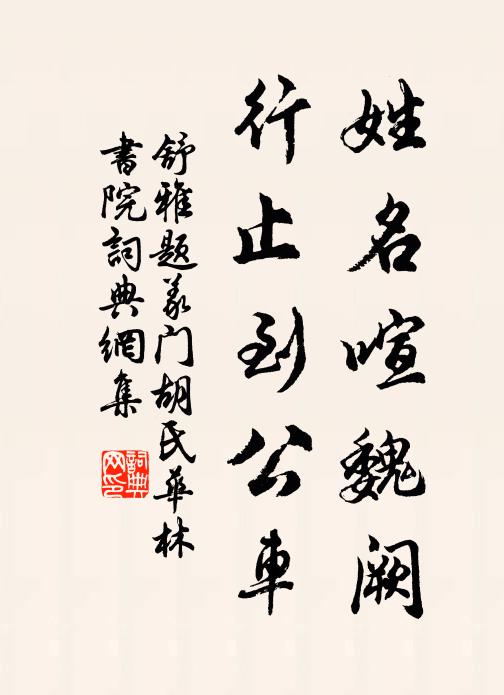 姓名喧魏阙
行止到公車
舒雅题义门胡氏华林
書院詞典網集
詞典网印